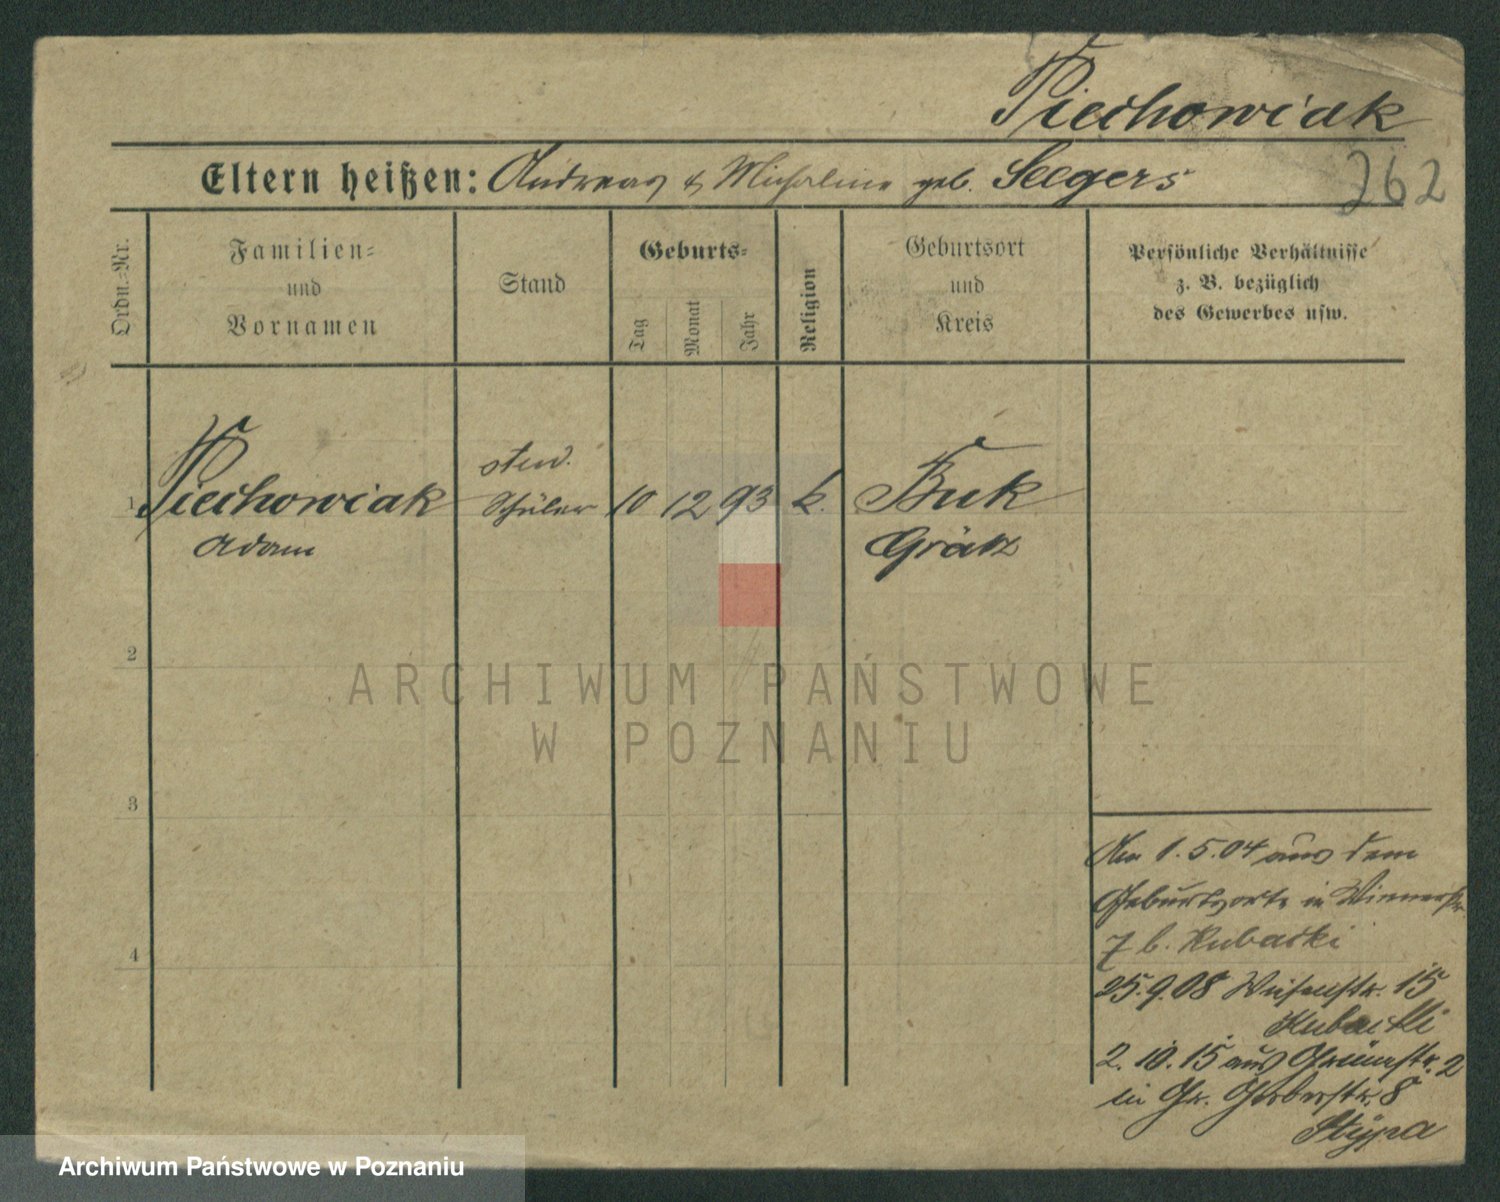 Piechowiak
Eltern heißen: Andreas & Michaline geb. Seegers
262
Ordn.-Nr.
Familien-
und
Vornamen
Stand
Geburts-
Tag
Monat
Jahr
Religion
Geburtsort
und
Kreis
Persönliche Verhältnisse
z. B. bezüglich
des Gewerbes usw.
1 Piechowiak Schüler 10 12 93 k. Buk
Adam Grätz
2
3
4
1.5.04 aus dem
Geburtsorte in Wienerstr.
7 b. Kubacki
25.9.08 15
Kubacki
2.10.15 aus Grünestr. 2
in Gr. Gerberstr. 8
Stypa
ARCHIWUM PAŃSTWOWE
W POZNANIU
Archiwum Państwowe w Poznaniu